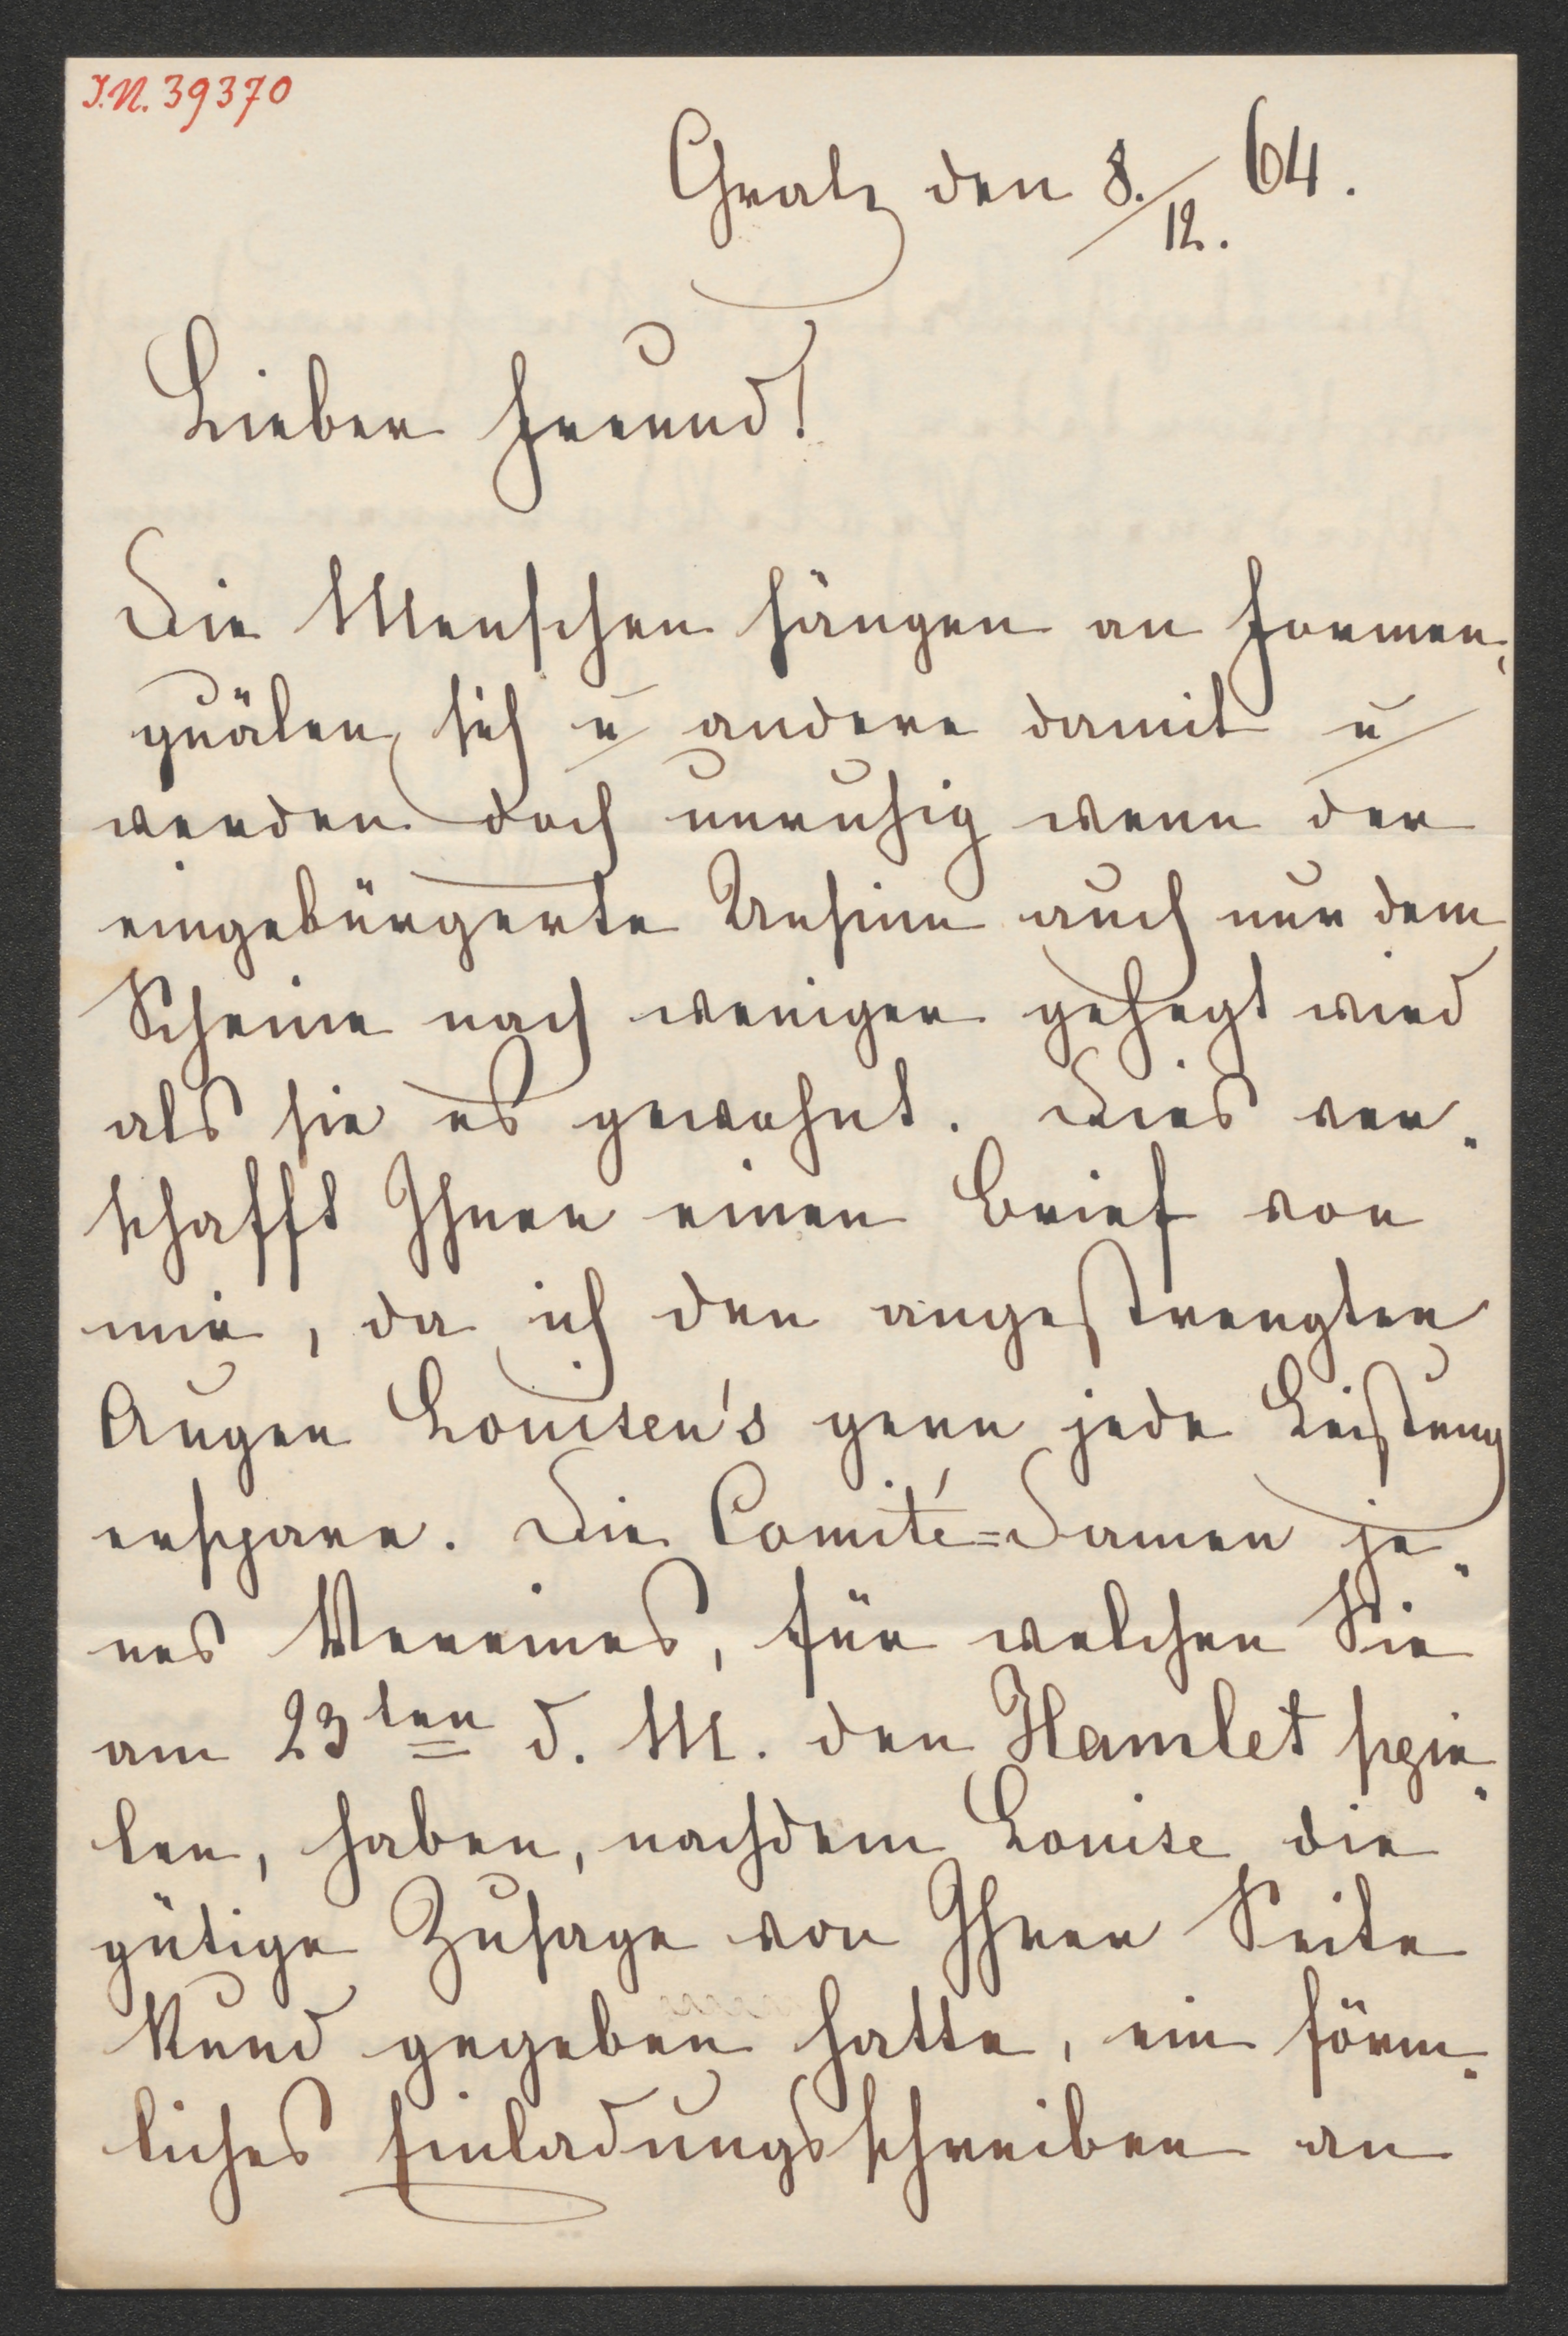 I.N. 39370
Gratz den 8./12. 64.
Lieber Freund!
Die Menschen hängen an Formen,
quälen sich u andere damit u
werden doch unruhig wenn der
eingebürgerte Unsinn auch nur dem
Scheine nach weniger gehegt wird
als sie es gewohnt. Dies ver-
schafft Ihnen einen Brief von
mir, da ich den angestrengten
Augen Louisen's gern jede Leistung
erspare. Die Comité=Damen je-
nes Vereines, für welchen Sie
am 23ten d. M. den Hamlet spie-
len, haben, nachdem Louise die
gütige Zusage von Ihrer Seite
kund gegeben hatte, ein förm-
liches Einladungsschreiben an